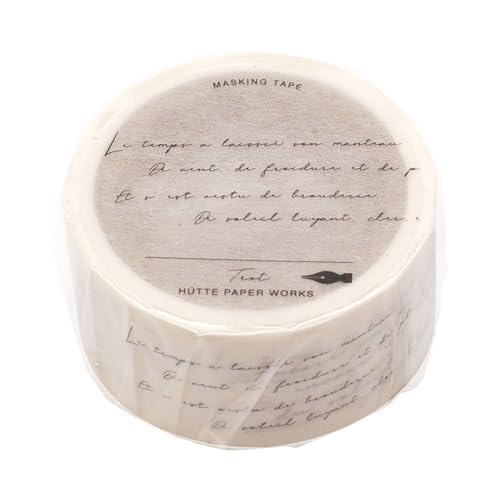 MASKING TAPE
Le temps a laissié son manteau
De vent, de froidure et de p
Et s'est vestu de brouderie,
De soleil luyant, cler e
Text
HÜTTE PAPER WORKS
Le temps a laissié son manteau
De vent, de froidure et de p
Et s'est vestu de brouderie,
De soleil luyant, cle